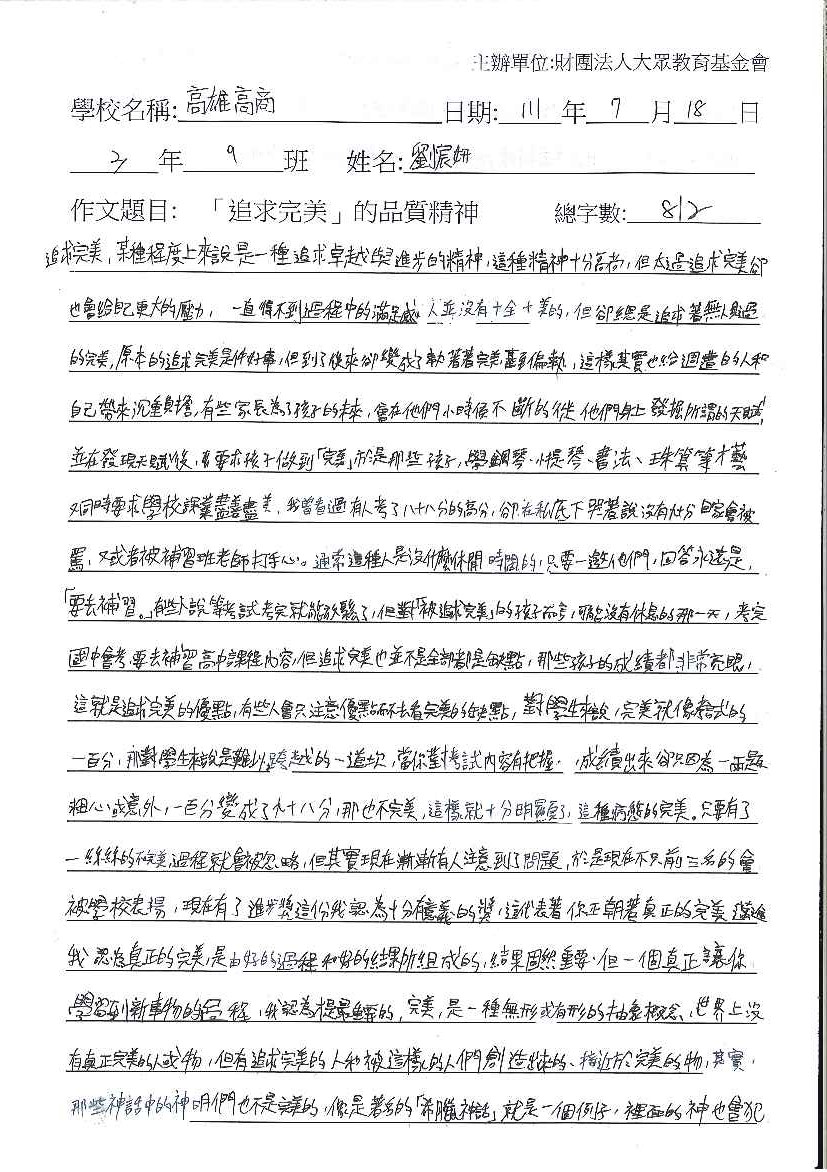 主辦單位:財團法人大眾教育基金會
學校名稱: 高雄高商 日期: 111 年 7 月 18 日
3 年 9 班 姓名: 劉宸妍
作文題目: 「追求完美」的品質精神 總字數: 812
追求完美,某種程度上來說是一種追求卓越與進步的精神,這種精神十分 但太過追求完美卻
也會給自己更大的壓力, 一直得不到過程中的滿足感 人並沒有十全十美的,但卻總是追求著無人
的完美,原本的追求完美是件好事,但到了後來卻變成了執著著完美甚至偏執,這樣其實也給週遭的人和
自己帶來沉重負擔,有些家長為了孩子的未來,會在他們小時侯不斷的從他們身上發掘所謂的天賦,
並在發現天賦後, 要求孩子做到「完美」於是那些孩子,學鋼琴、小提琴、書法、珠算等才藝
又同時要求學校課業盡善盡美,我曾看過有人考了八十八分的高分,卻在私底下哭著說沒有九十分回家會被
罵,又或者被補習班老師打手心。通常這種人是沒什麼休閒時間的,只要一邀他們,回答永遠是,
「要去補習。」有些人說等考試考完就能放鬆了,但對「被追求完美」的孩子而言,可能沒有休息的那一天,考完
國中會考,要去補習高中課程內容,但追求完美也並不是全部都是缺點,那些孩子的成績都非常亮眼,
這就是追求完美的優點,有些人會只注意優點而不去看完美的缺點,對學生來說,完美就像考試的
一百分,那對學生來說是難以跨越的一道坎,當你對考試內容有把握,成績出來卻只因為一兩題
粗心或意外,一百分變成了九十八分,那也不完美,這樣就十分明顯了,這種病態的完美。只要有了
一絲絲的不完美過程就會被忽略,但其實現在漸漸有人注意到了問題,於是現在不只前三名的會
被學校表揚,現在有了進步獎這份我認為十分有意義的獎,這代表著你正朝著真正的完美邁進
我認為真正的完美,是由好的過程和好的結果所組成的,結果固然重要,但一個真正讓你
學習到新事物的過程,我認為 是最重要的,完美,是一種無形或有形的抽象概念,世界上沒
有真正完美的人或物,但有追求完美的人和被這樣的人們創造出來的、接近於完美的物,其實,
那些神話中的神明們也不是完美的,像是著名的「希臘神話」就是一個例子,裡面的神也會犯